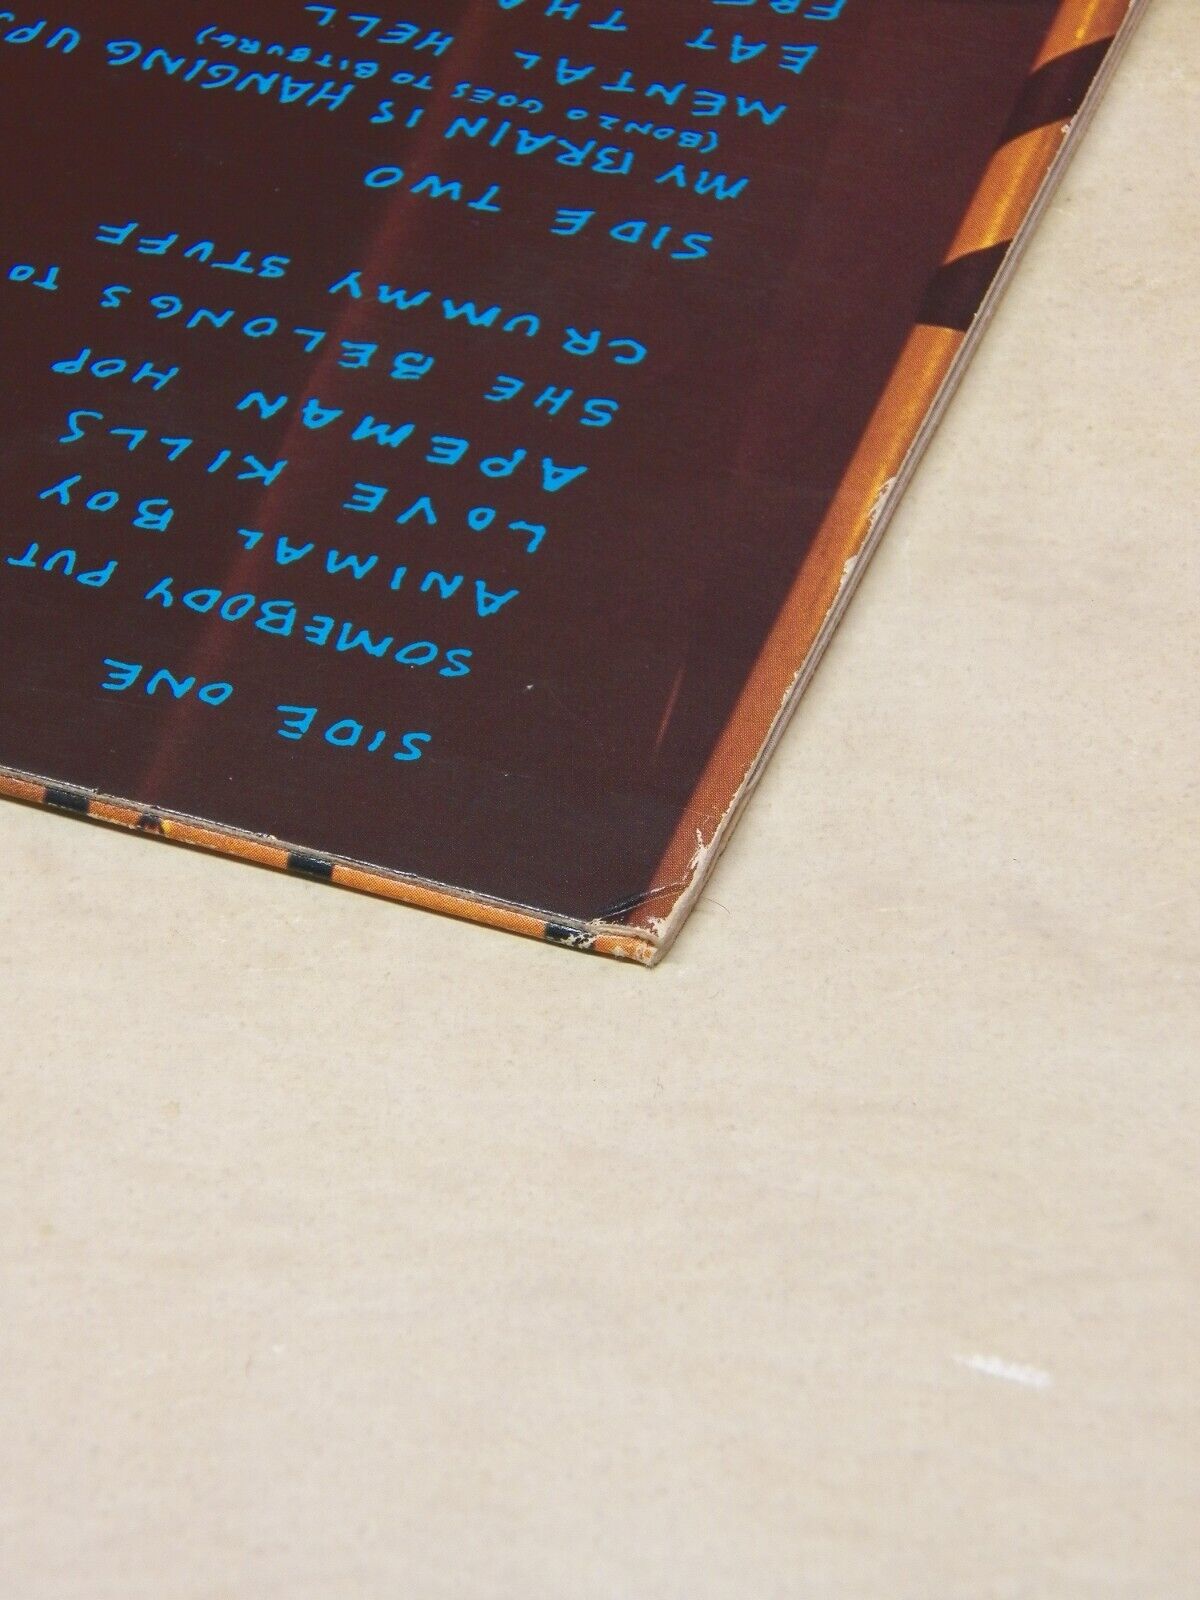 SIDE ONE
SOMEBODY PUT
ANIMAL BOY
LOVE KILLS
APEMAN HOP
SHE BELONGS TO
CRUMMY STUFF
SIDE TWO
MY BRAIN IS HANGING UPS
(BONZO GOES TO BITBURG)
MENTAL HELL
EAT THA